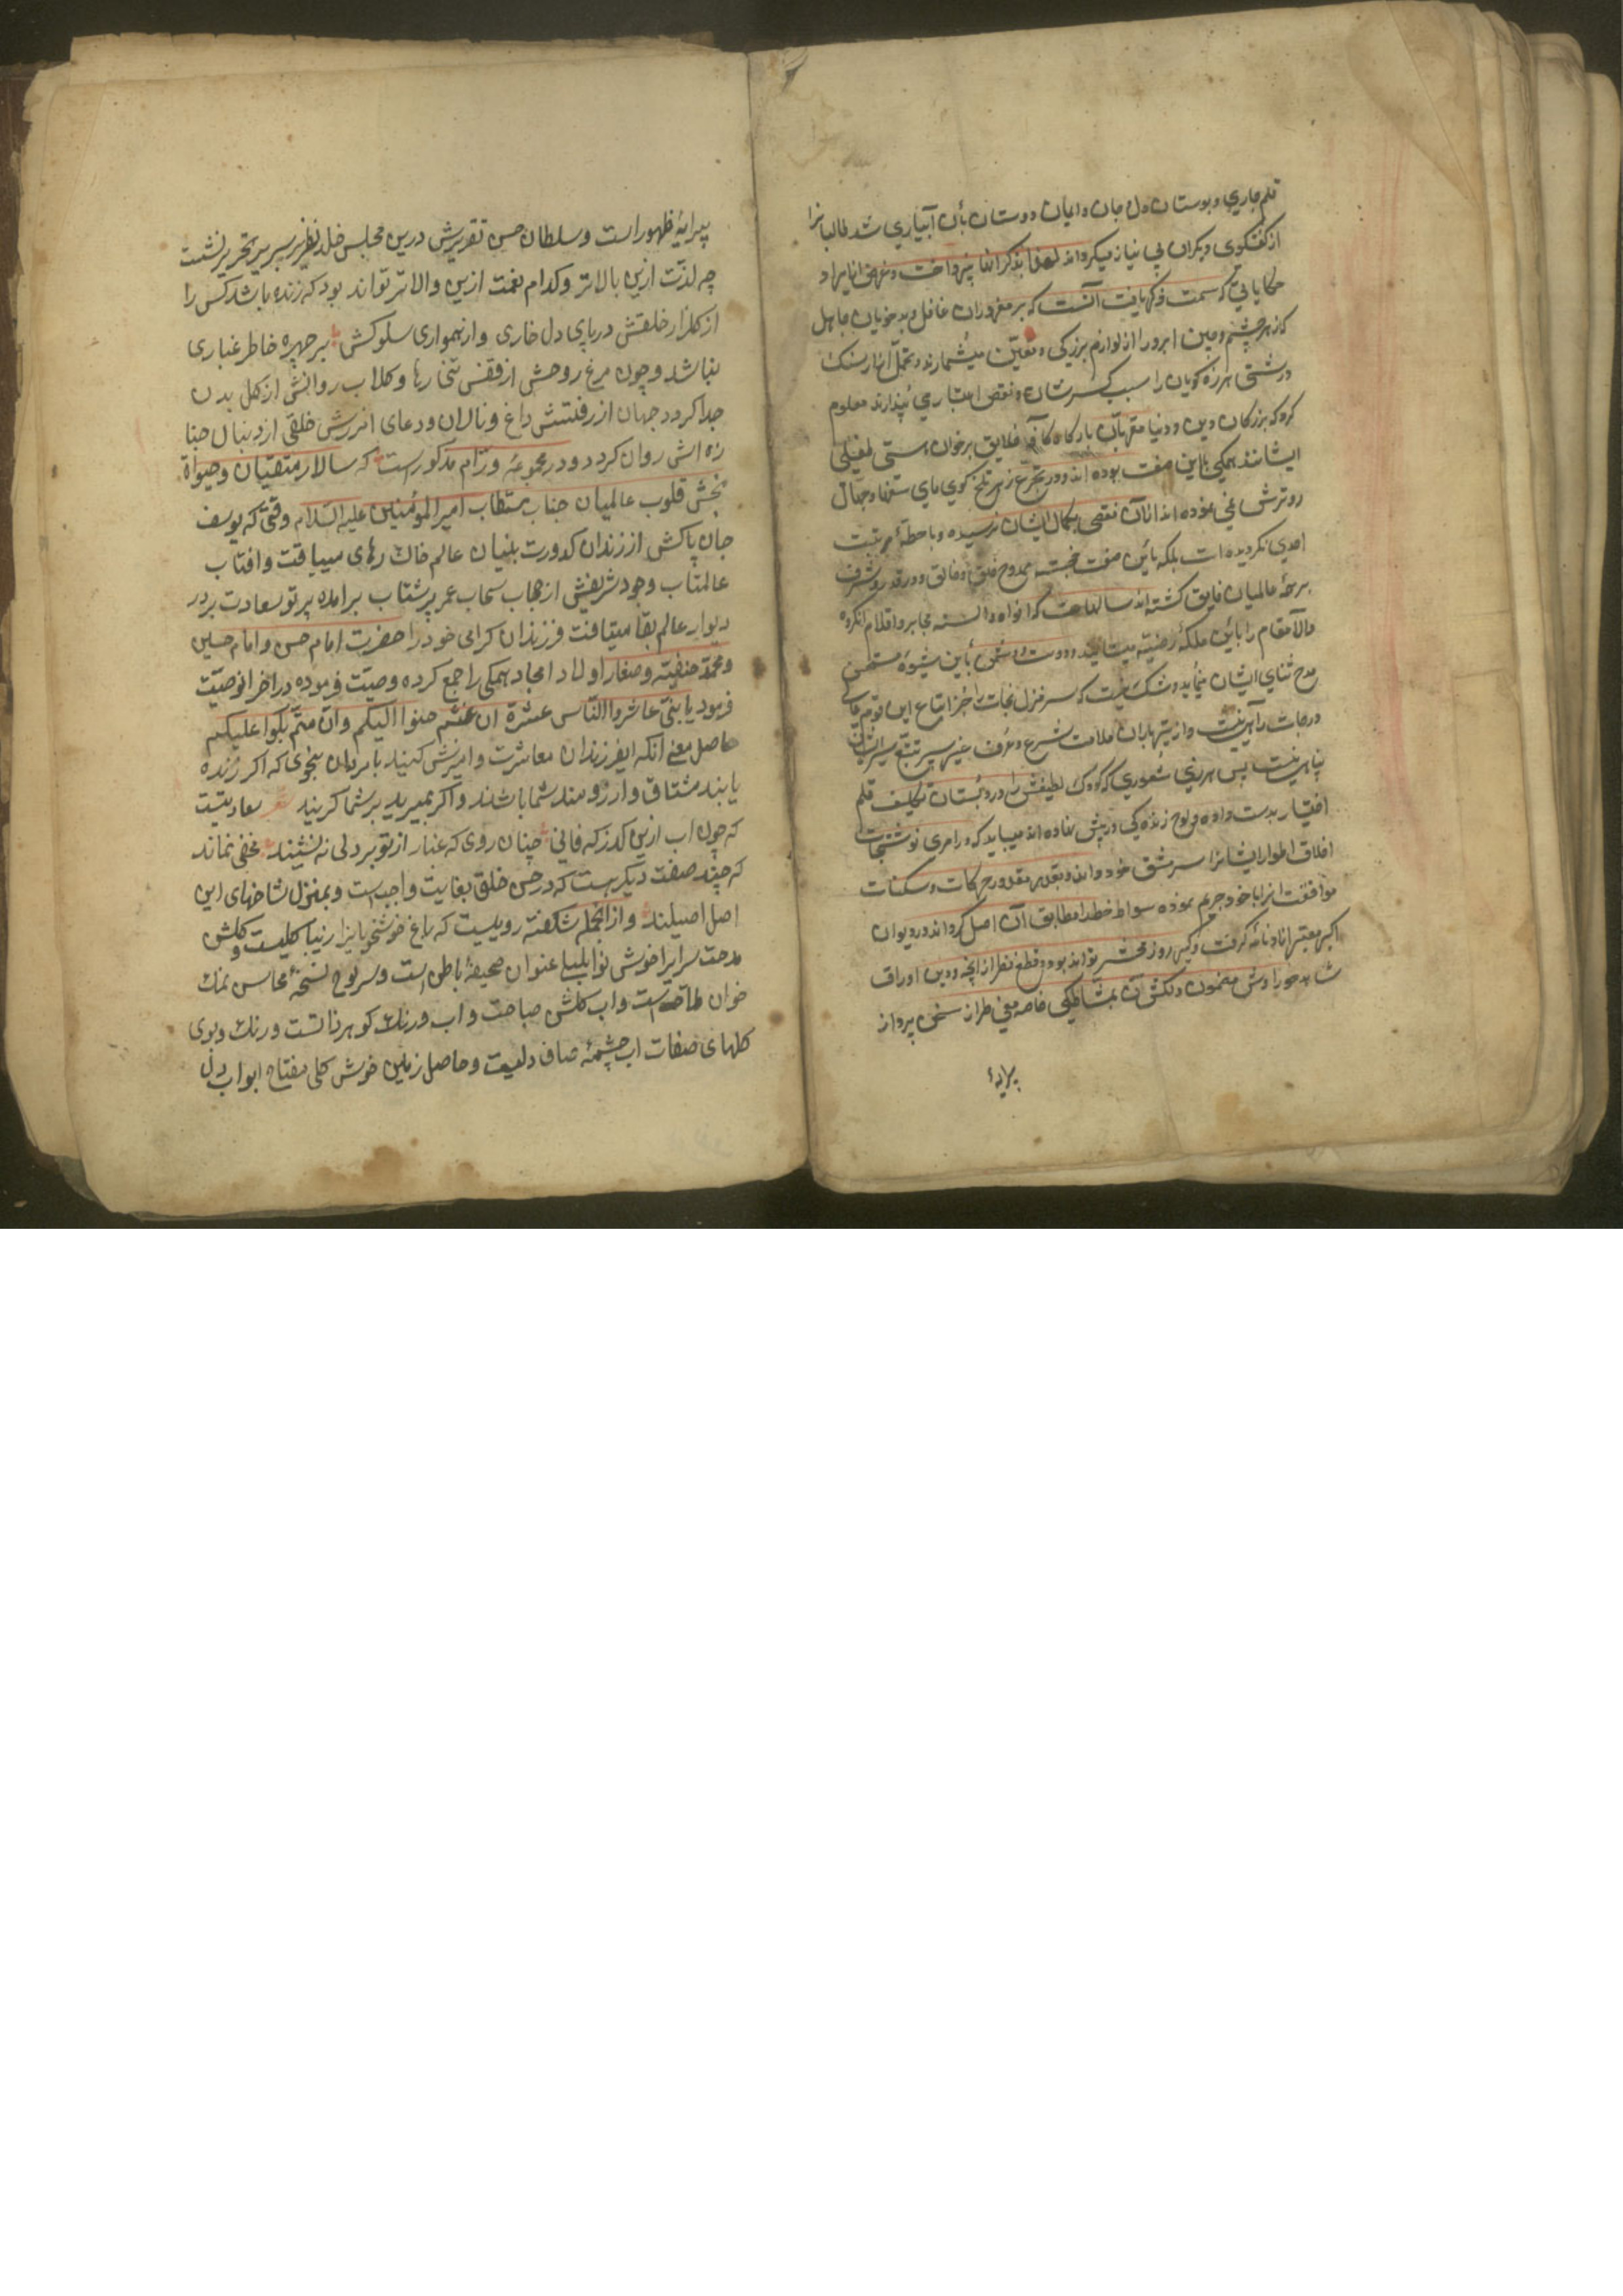 قلم جاری و بوستان دل و جان و ایمان دوستان بآن آبیاری شد طالبانرا
از گفتگوی دیگران بی نیاز میگرداند لهذا بذکر آنها نپرداخت و غرض از ایراد
حکایاتی که سمت ذکر یافت آنست که بر مغروران غافل و بدخویان جاهل
که زهر چشم و چین ابرو را از لوازم بزرگی و تعین میشمارند و تحمل آزار سنک
درشتی هرزه کویان را سبب کسر شان و نقص اعتبار می پندارند معلوم
کردد که بزرکان دین و دنیا مقربان بارکاه که آفرینش خلایق بر خوان هستی طفیلی
ایشانند همکی باین صفت بوده اند و در تجرع زهر تلخ کوی های سفها و جهال
رو ترش نمی نموده اند از آن نقصی بکمال ایشان نرسیده و باعث حطهٔ مرتبت
احدی نکردیده است بلکه باین صفت خجسته ممدوح خلق و خالق و در قدر و شرف
بر همهٔ عالمیان فایق کشته اند سالهاست که افواه و السنه محابر و اقلام آنکروه
والا مقام را باین ملکهٔ رضیه میستاید و دوست و دشمن باین شیوهٔ مستحسن
مدح ثنای ایشان مینماید و شک نیست که سر منزل نجات را جز اتباع این قوم عالی
درجات راهی نیست و از تیرباران ملامت شرع و عرف غیر سپر تتبع سیر ایشان
پناهی نیست پس هر ذی شعوری که کودک لطیفش را در دبستان تکلیف قلم
اختیار بدست داده و لوح زنده کی در پیش نهاده اند میباید که در امری نوشتجات
اخلاق اطوار ایشانرا سرمشق خود داند و بقدر مقدور حرکات و سکنات
موافقت انرا با خود جزم نموده سواد خط را مطابق آن اصل کرداند و در دیوان
اکبر معتبر انا و نامه کرفت و کیر روز محشر تواند بود و قطع نظر از آنچه درین اوراق
شاهد حورا وش مضمون دلکش آن بمشاطکی خامه معنی طراز سخن پرداز
پیرایهٔ
پیرایهٔ ظهور راست و سلطان حسن تقریرش درین مجلس خلد نظیر بر سریر تحریر نشست
چه لذت ازین بالاتر و کدام نعمت ازین والاتر تواند بود که زنده باشد کس را
از کلزار خلقش در پای دل خاری و از همواری سلوکش بر چهره خاطر غباری
نباشد و چون مرغ روحش از قفس تن رها و کلاب روانش از کل بدن
جدا کردد جهان از رفتنش داغ و نالان و دعای امرزش خلقی از دنبال جنا
زه اش روان کردد و در مجموعهٔ ورّام مذکور است که سالار متقیان و حیوة
بخش قلوب عالمیان جناب مستطاب امیرالمؤمنین علیه السلام وقتی که یوسف
جان پاکش از زندان کدورت بنیان عالم خاک رهای مییافت و افتاب
عالمتاب وجود شریفش از حجاب سحاب عمر پرشتاب برامده پرتو سعادت بر در
دیوار عالم بقا میتافت فرزندان کرامی خود را حضرت امام حسن و امام حسین
و محمد حنفیه و صغار اولاد امجاد همکی را جمع کرده وصیت فرموده در اخر انوصیت
فرمود یا بنیّ عاشروا الناس عشرة ان عشتم حنوا الیکم وان متم بکوا علیکم
حاصل معنی انکه ایفرزندان معاشرت و امیزش کنید با مردمان بنحوی که اکر زنده
یابند مشتاق و ارزومند شما باشند و اکر بمیرید بر شما کریند شعر سعادتیست
که چون اب ازین کدرکه فانی چنان روی که غبار از تو بر دلی ننشیند مخفی نماند
که چند صفت دیکر هست که در حسن خلق بغایت واجبست و بمنزل شاخهای این
اصل اصیلند و از انجمله شکفته روییست که باغ خوشخویانرا زیبا کلیست و کلشن
مدحت سرایرا خوش نوا بلبل عنوان صحیفهٔ باطن است و سر لوح نسخهٔ محاسن نمک
خوان ملاحت است و اب کلشن صباحت و اب و رنک کوهر ذاتست و رنک و بوی
کلهای صفات اب چشمهٔ صاف دلیست و حاصل زمین خوش کلی مفتاح ابواب دل